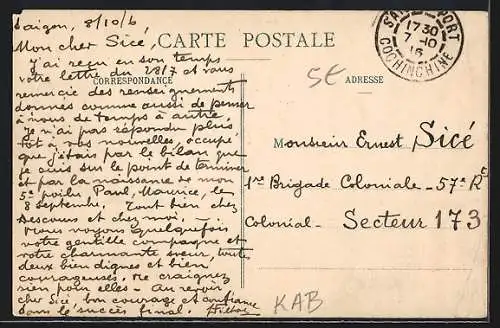 Saigon, 8/10/6
Mon cher Sicé,
CARTE POSTALE
J'ai reçu en son temps
votre lettre du 28/7 et vous
CORRESPONDANCE
remercie des renseignements
donnés comme aussi de penser
à nous de temps à autre.
Je n'ai pas répondu plus
tôt à vos nouvelles, occupé
que j'étais par le bilan que
je suis sur le point de terminer
et par la naissance de mon
5e poilu Paul, Maurice, le
8 septembre. Tout bien chez
Descours et chez moi.
Nous voyons quelquefois
votre gentille compagne et
votre charmante sœur, toutes
deux bien dignes et bien
courageuses. Ne craignez
rien pour elles - Au revoir,
cher Sicé, bon courage et confiance
dans le succès final.
5€
ADRESSE
SAIGON PORT
1730
7-10
16
COCHINCHINE
Monsieur Ernest Sicé
1re Brigade Coloniale - 57e R
Colonial - Secteur 173
KAB